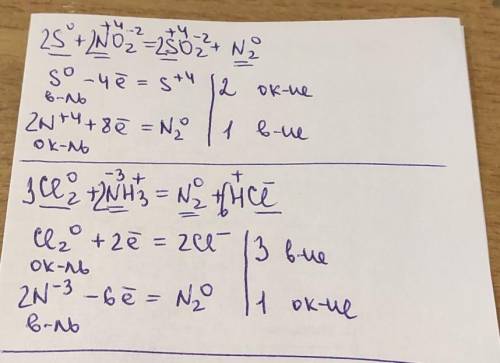 2S⁰ + 2N⁺⁴O₂⁻² = 2S⁺⁴O₂⁻² + N₂⁰
S⁰ - 4ē = S⁺⁴ | 2 ок-ие
в-ль
2N⁺⁴ + 8ē = N₂⁰ | 1 в-ие
ок-ль
3Cl₂⁰ + 2N⁻³H₃⁺ = N₂⁰ + 6H⁺Cl⁻
Cl₂⁰ + 2ē = 2Cl⁻ | 3 в-ие
ок-ль
2N⁻³ - 6ē = N₂⁰ | 1 ок-ие
в-ль